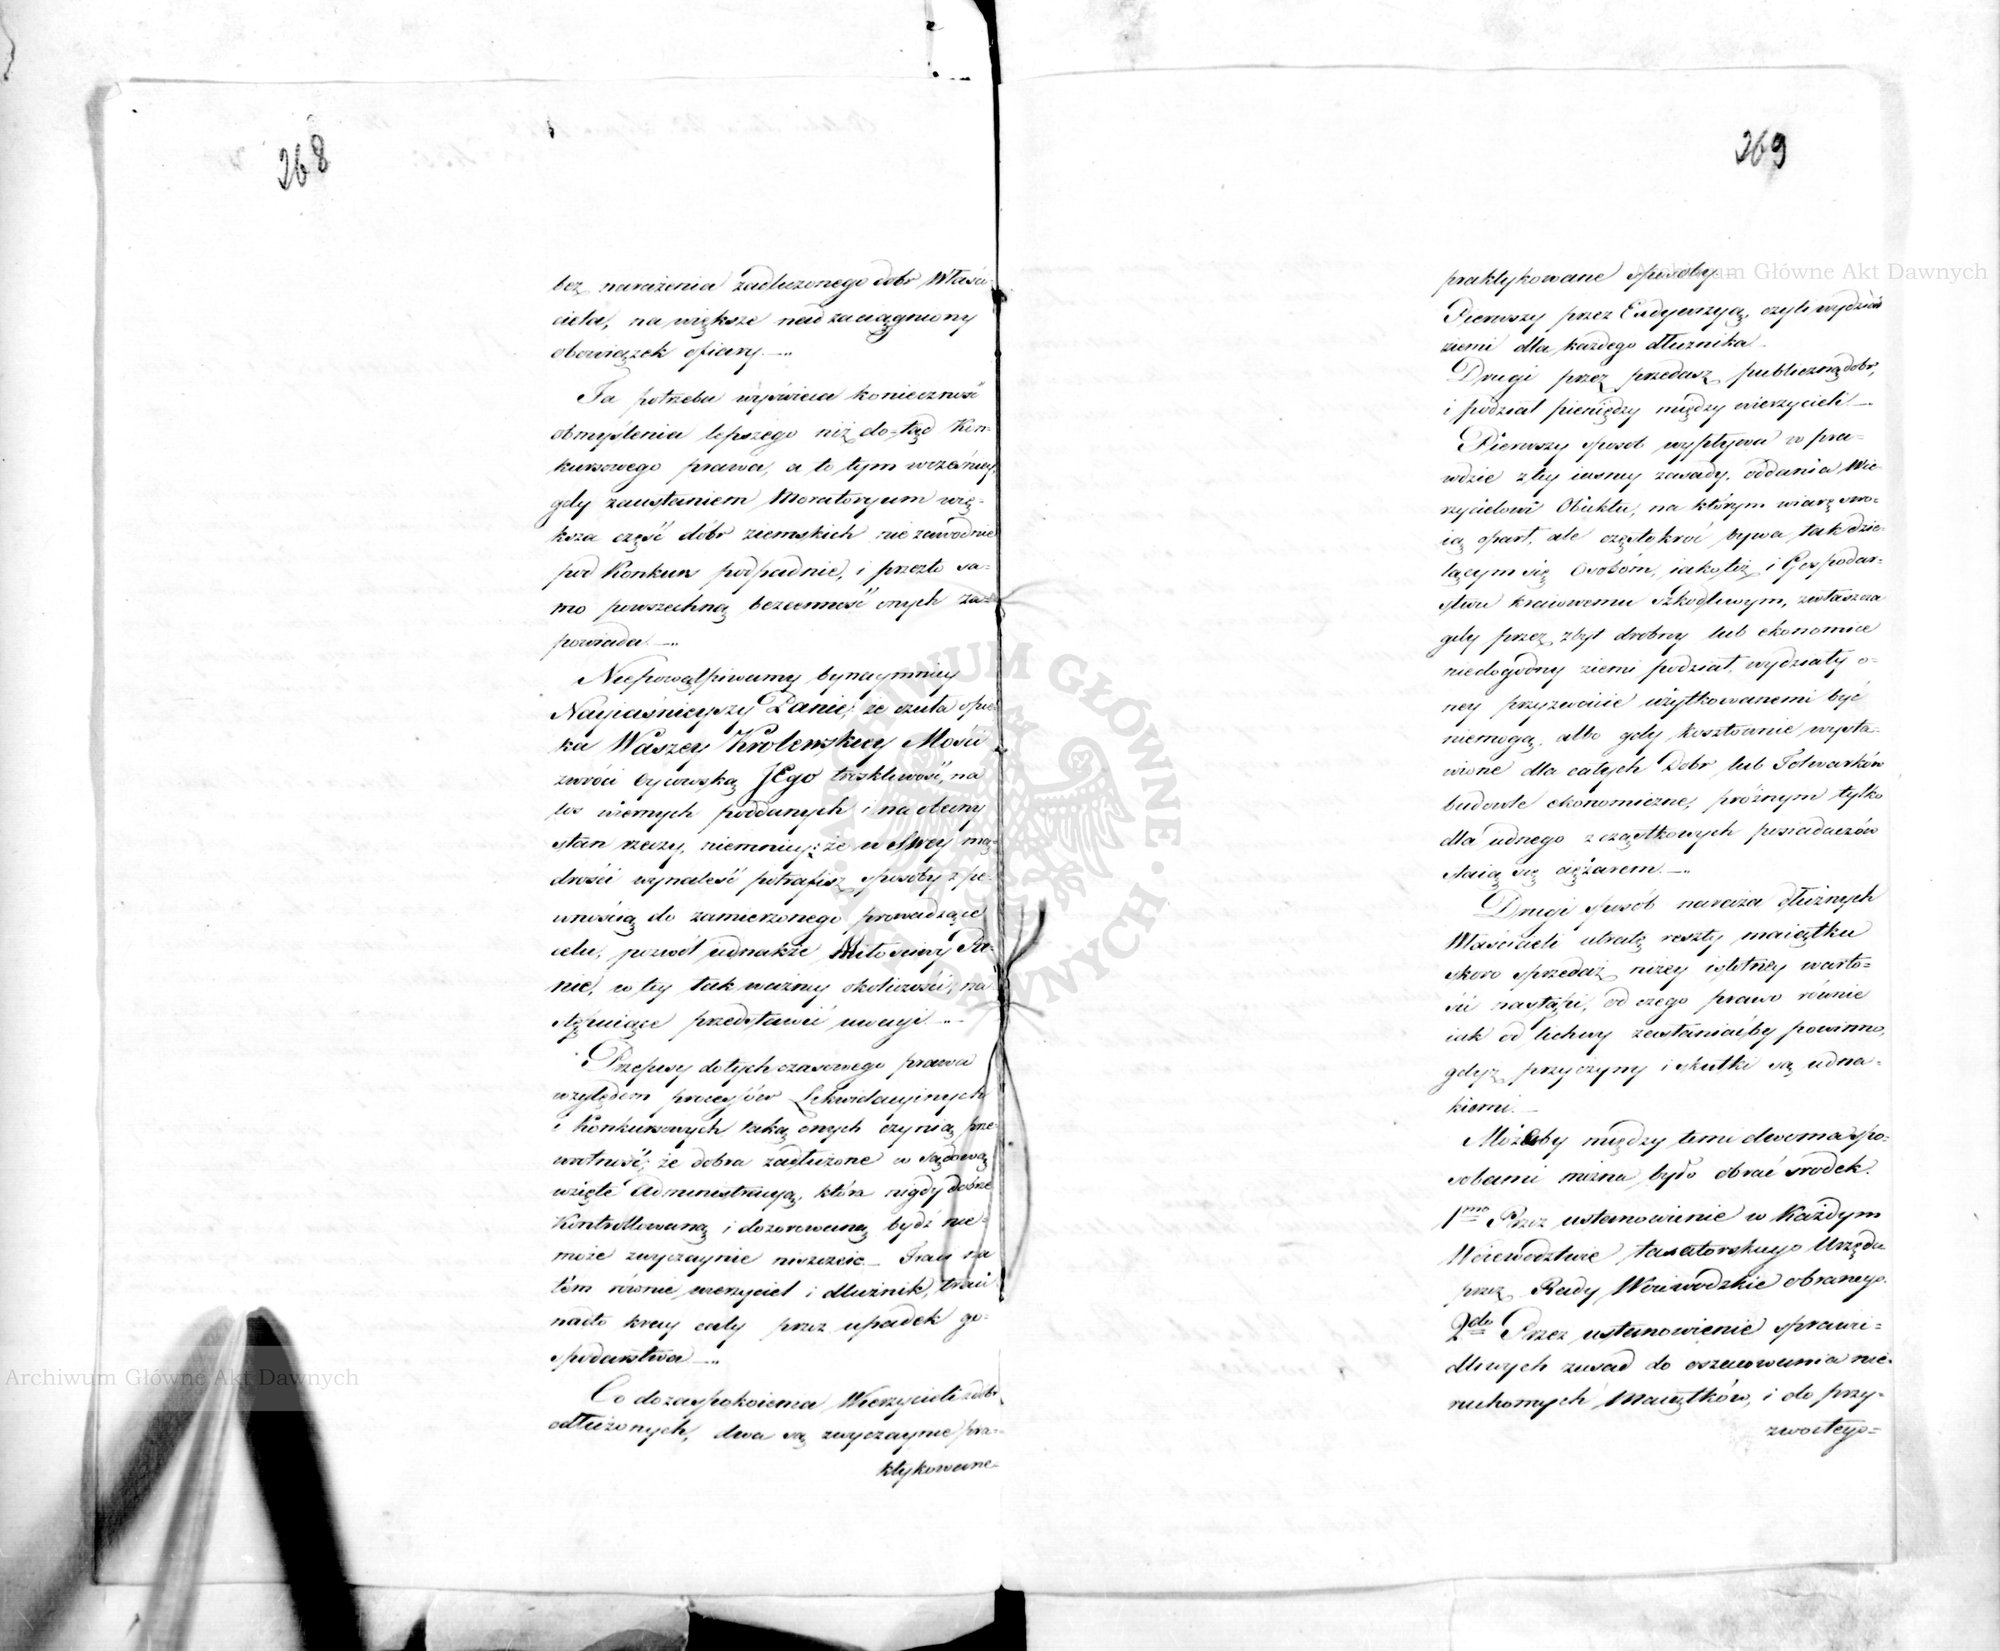 268
bez narażenia zadłużonego dobr Właści-
ciela, na większe nad zaciągniony
obowiązek ofiary. —
Ta potrzeba wyświeca konieczność
obmyślenia lepszego niż do-tąd Kon-
kursowego prawa, a to tym wcześniey,
gdy zaustaniem Moratoryum wię-
ksza część dóbr ziemskich niezawodnie
pod Konkurs podpadnie, i przezto sa-
mo powszechną bezcenność onych za-
powiada. —
Niepowątpiwamy bynaymniey
Nayiaśnieyszy Panie, że czuła opie-
ka Waszey Krolewskiey Mości
zwróci oycowską Jego troskliwość, na
los wiernych poddanych i na obecny
stan rzeczy, niemniey; że w Swey mą-
drości wynaleść potrafisz sposoby z pe-
wnością do zamierzonego prowadzące
celu, pozwól iednakże Miłosciwy Pa-
nie, w tey tak ważney okoliczności, na
stępuiące przedstawić uwagi. —
Przepisy dotychczasowego prawa
względem processów Likwidacyinych
i Konkursowych taką onych czynią prze
wrotność; że dobra zadłużone w sądową
wzięte Administracyą, która nigdy dobrze
Kontrollowaną i dozorowaną bydź nie-
może zwyczaynie niszczeie. — Traci na
tém równie wierzyciel i dłużnik, traci
nadto kray cały przez upadek go-
spodarstwa. —
Co do zaspokoienia Wierzycieli z dobr
odłużonych, dwa są zwyczaynie pra-
ktykowane-
269
praktykowane sposoby
Pierwszy przez Exdywizyą, czyli wydział
ziemi dla każdego dłużnika.
Drugi przez przedaż publiczną dobr,
i podział pieniędzy między wierzycieli. —
Pierwszy sposob wypływa w pra-
wdzie z tey iasney zasady, oddania Wie-
rzycielowi Obiektu, na którym wiarę swo-
ią oparł, ale częstokroć bywa tak dzie-
lącym się Osobóm, iako też i Gospodar-
stwu kraiowemu szkodliwym, zwłaszcza
gdy przez zbyt drobny lub ekonomice
niedogodny ziemi podział, wydziały o-
ney przyzwoicie użytkowanemi być
niemogą, albo gdy kosztownie wysta-
wione dla całych Dobr lub Folwarków
budowle ekonomiczne, próżnym tylko
dla iednego z cząstkowych posiadaczów
staią się ciężarem. —
Drugi sposób naraża dłużnych
Właścicieli utratą reszty maiątku
skoro sprzedaż niżey istotney warto-
ści nastąpi, od czego prawo równie
iak od lichwy zasłaniaćby powinno,
gdyż przyczyny i skutki są iedna-
kiemi. —
Możeby między temi dwoma spo-
sobami można było obrać srodek.
1mo Przez ustanowienie w Każdym
Woiewództwie taxatorskiego Urzędu
przez Rady Woiewodzkie obranego.
2do Przez ustanowienie sprawie-
dliwych zasad do oszacowania nie-
ruchomych Maiątków, i do przy-
zwoitego-
Archiwum Główne Akt Dawnych
Archiwum Główne Akt Dawnych
ARCHIWUM GŁÓWNE AKT DAWNYCH